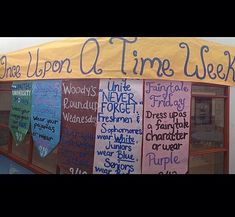 Once Upon A Time Week
UNIVERSITY
wear
your
pajamas
Woody's
Roundup
Wednesday
Unite
NEVER
FORGET
Freshmen &
Sophomores
wear White,
Juniors
wear Blue,
Seniors
wear
Fairytale
Friday
Dress up as
a fairytale
character
or wear
Purple